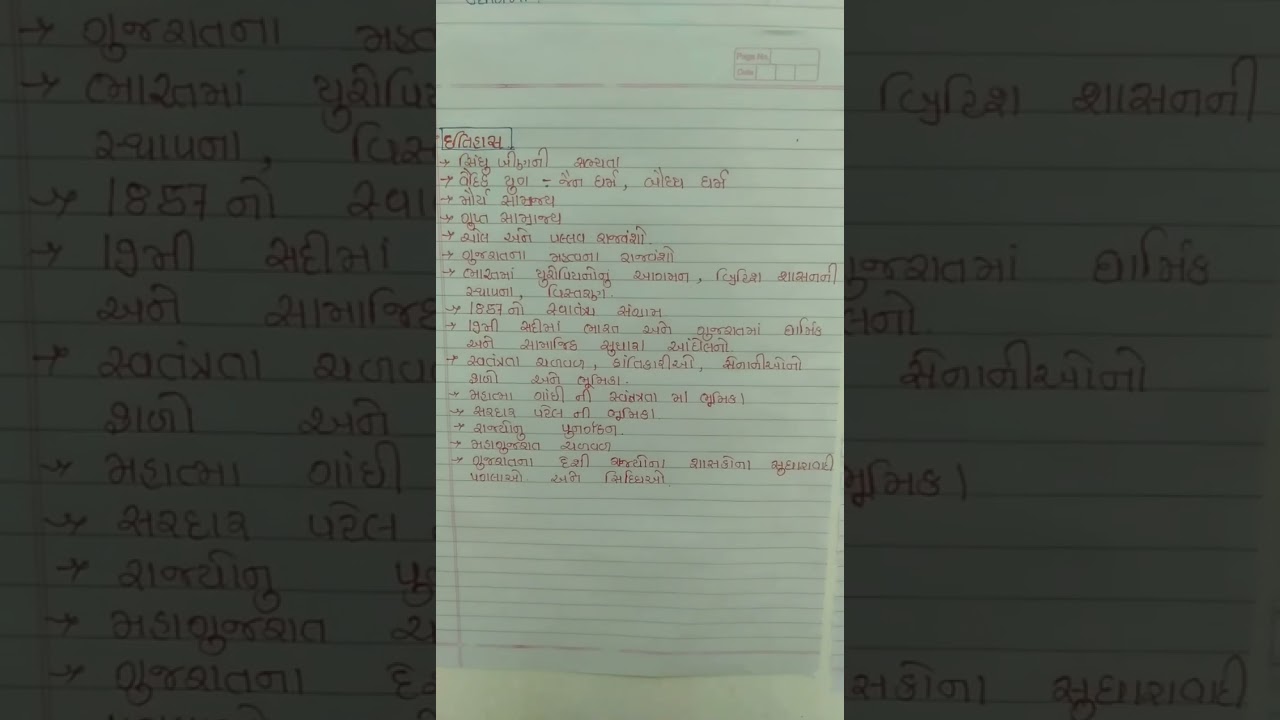 Page No.
Date
ઇતિહાસ
→ સિંધુ ખીણની સભ્યતા
→ વૈદિક યુગ - જૈન ધર્મ, બૌધ્ધ ધર્મ
→ મૌર્ય સામ્રાજ્ય
→ ગુપ્ત સામ્રાજ્ય
→ ચોલ અને પલ્લવ રાજવંશો.
→ ગુજરાતના મહત્વના રાજવંશો
→ ભારતમાં યુરોપિયનોનું આગમન, બ્રિટિશ શાસનની
સ્થાપના, વિસ્તરણ.
→ 1857 નો સ્વાતંત્ર્ય સંગ્રામ
→ 19મી સદીમાં ભારત અને ગુજરાતમાં ધાર્મિક
અને સામાજિક સુધારા આંદોલનો.
→ સ્વતંત્રતા ચળવળ, ક્રાંતિકારીઓ, સેનાનીઓનો
ફાળો અને ભૂમિકા.
→ મહાત્મા ગાંધી ની સ્વતંત્રતા માં ભૂમિકા
→ સરદાર પટેલ ની ભૂમિકા
→ રાજ્યોનુ પુનર્ગઠન.
→ મહાગુજરાત ચળવળ
→ ગુજરાતના દેશી રાજ્યોના શાસકોના સુધારાવાદી
પગલાઓ અને સિધ્ધિઓ.